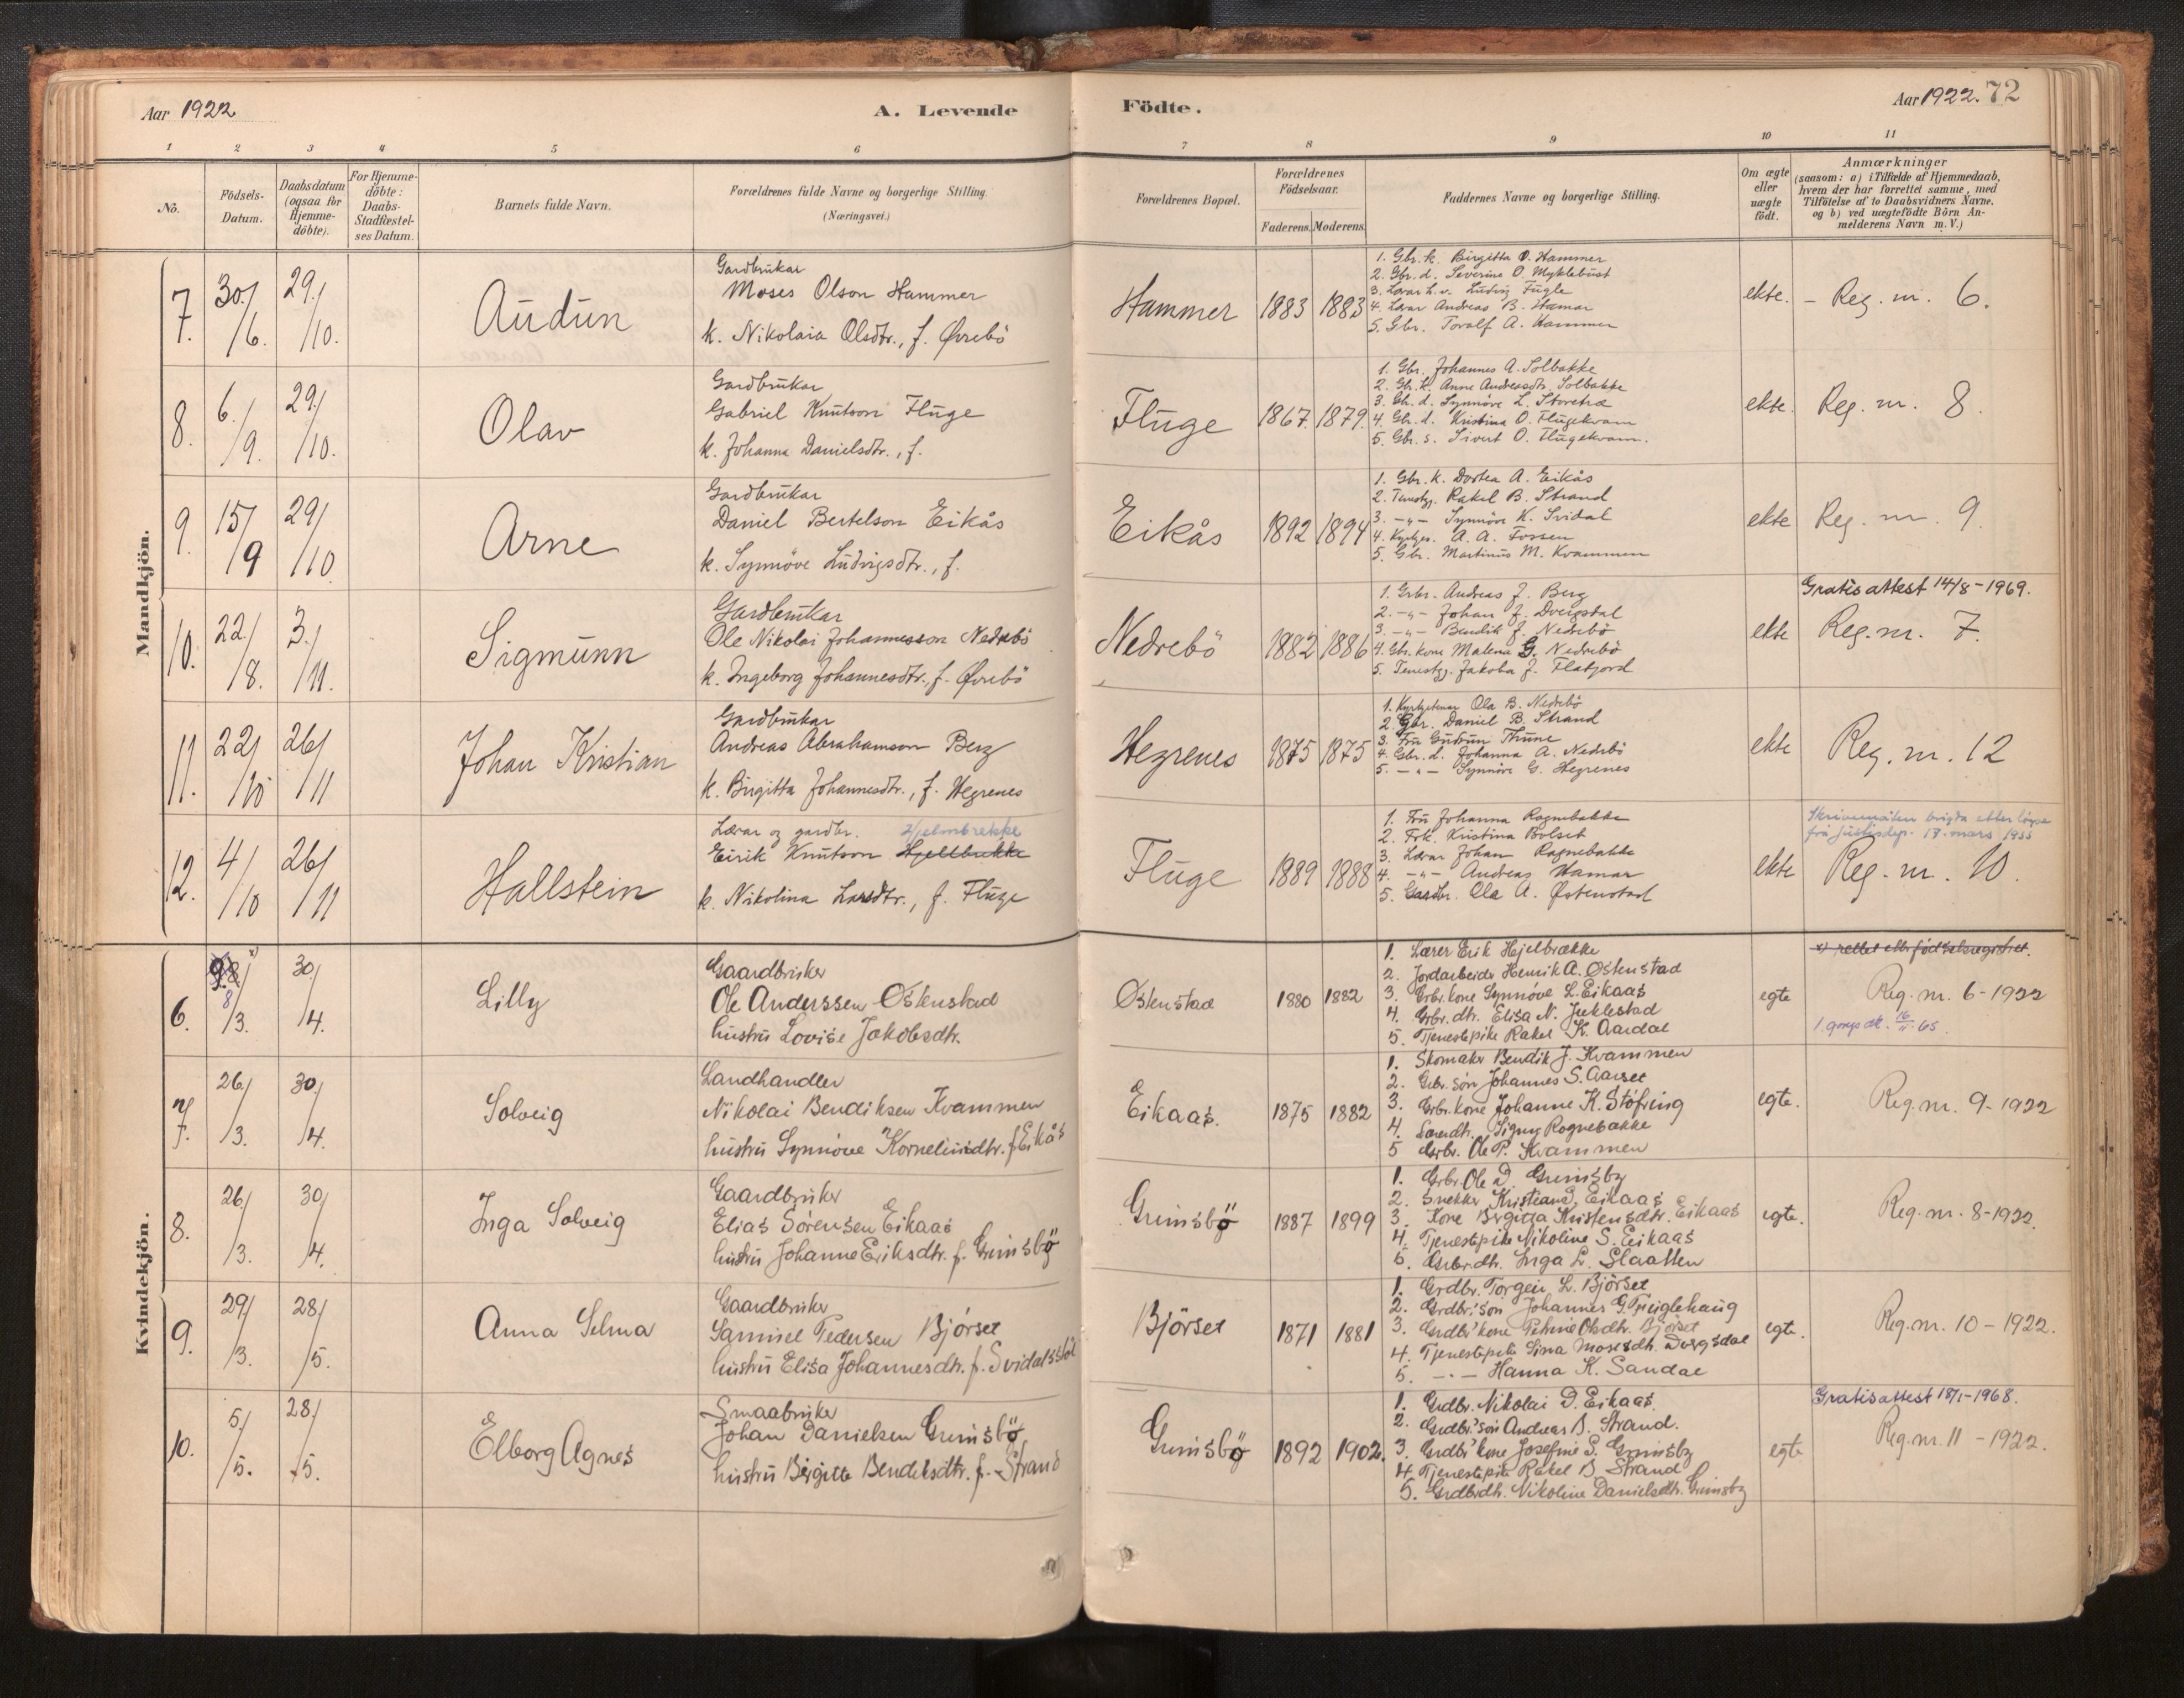 Aar 1922.
A. Levende
Födte.
Aar 1922. 72
1 2 3 4 5 6 7 8 9 10 11
No.
Födsels-
Datum.
Daabsdatum
(ogsaa for
Hjemme-
döbte).
For Hjemme-
döbte:
Daabs-
Stadfæstel-
ses Datum.
Barnets fulde Navn.
Forældrenes fulde Navne og borgerlige Stilling.
(Næringsvei.)
Forældrenes Bopæl.
Forældrenes
Födselsaar.
Faderens. Moderens.
Faddernes Navne og borgerlige Stilling.
Om ægte
eller
uægte
födt.
Anmærkninger
(saasom: a) i Tilfælde af Hjemmedaab,
hvem der har forrettet samme, med
Tilföielse af to Daabsvidners Navne.
og b) ved uægtefödte Börn An-
melderens Navn m.V.)
Mandkjön.
7. 30./6. 29./10. Audun
Gardbrukar
Moses Olson Hammer
k. Nikolaia Olsdtr., f. Øvrebö
Hammer 1883 1883
1. Gbr. k. Birgitta O. Hammer
2. Gbr. d. Severine O. Myklebust
3. Lærar L. v. Ludvig Fugle
4. Lærar Andreas B. Hamar
5. Gbr. Toralf A. Hammer
ekte. - Reg. nr. 6.
8. 6./9. 29./10. Olav
Gardbrukar
Gabriel Knutson Fluge
k. Johanna Danielsdtr., f.
Fluge 1867. 1879.
1. Gbr. Johannes A. Solbakke
2. Gb. k. Anne Andreasdtr. Solbakke
3. Gb. d. Synnöve L. Storetræ
4. Gb. d. Kristina O. Flugekvam
5. Gbr. s. Sivert O. Flugekvam.
ekte. Reg. nr. 8.
9. 15/9 29/10 Arne
Gardbrukar
Daniel Bertelson Eikås
k. Synnöve Ludvigsdtr., f.
Eikås 1892 1894
1. Gbr. k. Dortea A. Eikås
2. Tenestg. Rakel B. Strand
3. -"- Synnöve K. Svidal
4. Kyrkjes. A. A. Fossen
5. Gbr. Martinus M. Kvammen
ekte Reg. nr. 9.
10. 22./8. 3./11. Sigmunn
Gardbrukar
Ole Nikolai Johannesson Nedrebö
k. Ingeborg Johannesdtr., f. Øvrebö
Nedrebö 1882 1886
1. Grbr. Andreas J. Berg
2. -"- Johan J. Dvergsdal
3. -"- Bendik J. Nedrebö
4. Gbr. kone Malena G. Nedrebö
5. Tenestg. Jakoba J. Flatjord
Gratis attest 14/8-1969.
ekte Reg. nr. 7.
11. 22/10 26/11 Johan Kristian
Gardbrukar
Andreas Abrahamson Berg
k. Birgitta Johannesdtr., f. Hegrenes
Hegrenes 1875 1875
1. Kyrkjetenar Ola B. Nedrebö
2. Gbr. Daniel B. Strand
3. Fru Gudrun Thune
4. Gbr. d. Johanna A. Nedrebö
5. -"- Synnöve G. Hegrenes
ekte Reg. nr. 12
12. 4/10 26/11 Hallstein
Lærar og gardbr. Hjelmbrekke
Eirik Knutson Hjellbrekke
k. Nikolina Larsdtr., f. Fluge
Fluge 1889 1888
1. Fru Johanna Rognebakke
2. Frk. Kristina Bolset
3. Lærar Johan Rognebakke
4. -"- Andreas Hamar
5. Gardbr. Ola A. Østenstad
Skrivemåten brigda etter löyve
frå justisdep. 17. mars 1933
ekte Reg. nr. 10.
Kvindekjön.
6. 8/3. 30/4. Lilly
Gaardbruker
Ole Anderssen Østenstad
hustru Lovise Jakobsdtr.
Østenstad 1880 1882
1. Lærer Erik Hjelbrække
2. Jordarbeider Henrik A. Østenstad
3. Grbr. kone Synnöve L. Eikaas
4. Grbr. dtr. Elisa N. Juklestad
5. Tjenestepike Rakel K. Aardal
x) rettet etter födselsregistret.
egte Reg. nr. 6-1922
26/3. 30/4. 7. Solveig
Landhandler
Nikolai Bendiksen Kvammen
hustru Synnöve Korneliusdtr. f. Eikås
Eikaas. 1875 1882
1. Skomaker Bendik J. Kvammen
2. Grbr. sön Johannes S. Aarset
3. Grbr. kone Johanne K. Stöfring
4. Lærerdtr. Signy Rognebakke
5 Grbr. Ole P. Kvammen
egte. Reg. nr. 9-1922
8. 26/3. 30/4. Inga Solveig
Gaardbruker
Elias Sörensen Eikaas
hustru Johanne Eriksdtr. f. Grimsbö
Grimsbö 1887 1899
1. Grbr. Ole D. Grimsby
2. Snekker Kristian J. Eikaas
3. Kone Birgitta Kristensdtr. Eikaas
4. Tjenestepike Nikoline S. Eikaas
5. Grbr. dtr. Inga L. Slaatten
egte. Reg. nr. 8-1922.
9. 29/3. 28/5. Anna Selma
Gaardbruker
Samuel Pedersen Björset
hustru Elisa Johannesdtr. f. Svidalsstöl
Björset 1871 1881
1. Grdbr. Torgeir L. Björset
2. Grdbr's sön Johannes G. Fuglehaug
3. Grdbr' kone Petrine Olsdtr. Björset
4. Tjenestepike Sina Mosesdtr. Dvergsdal
5. -"- Hanna K. Sandal
egte. Reg. nr. 10-1922.
10. 5/5. 28/5. Elborg Agnes
Smaabruker
Johan Danielsen Grimsbö
hustru Birgitte Bendiksdtr. f. Strand
Grimsbö 1892 1902.
1. Grdbr. Nikolai D. Eikaas.
2. Grdbr' sön Andreas B. Strand.
3. Grdbr' kone Josefine S. Grimsby
4. Tjenestepike Rakel B. Strand
5. Grdbrdtr. Nikoline Danielsdtr. Grimsby
Gratis attest 18/1-1968.
egte Reg. nr. 11-1922.